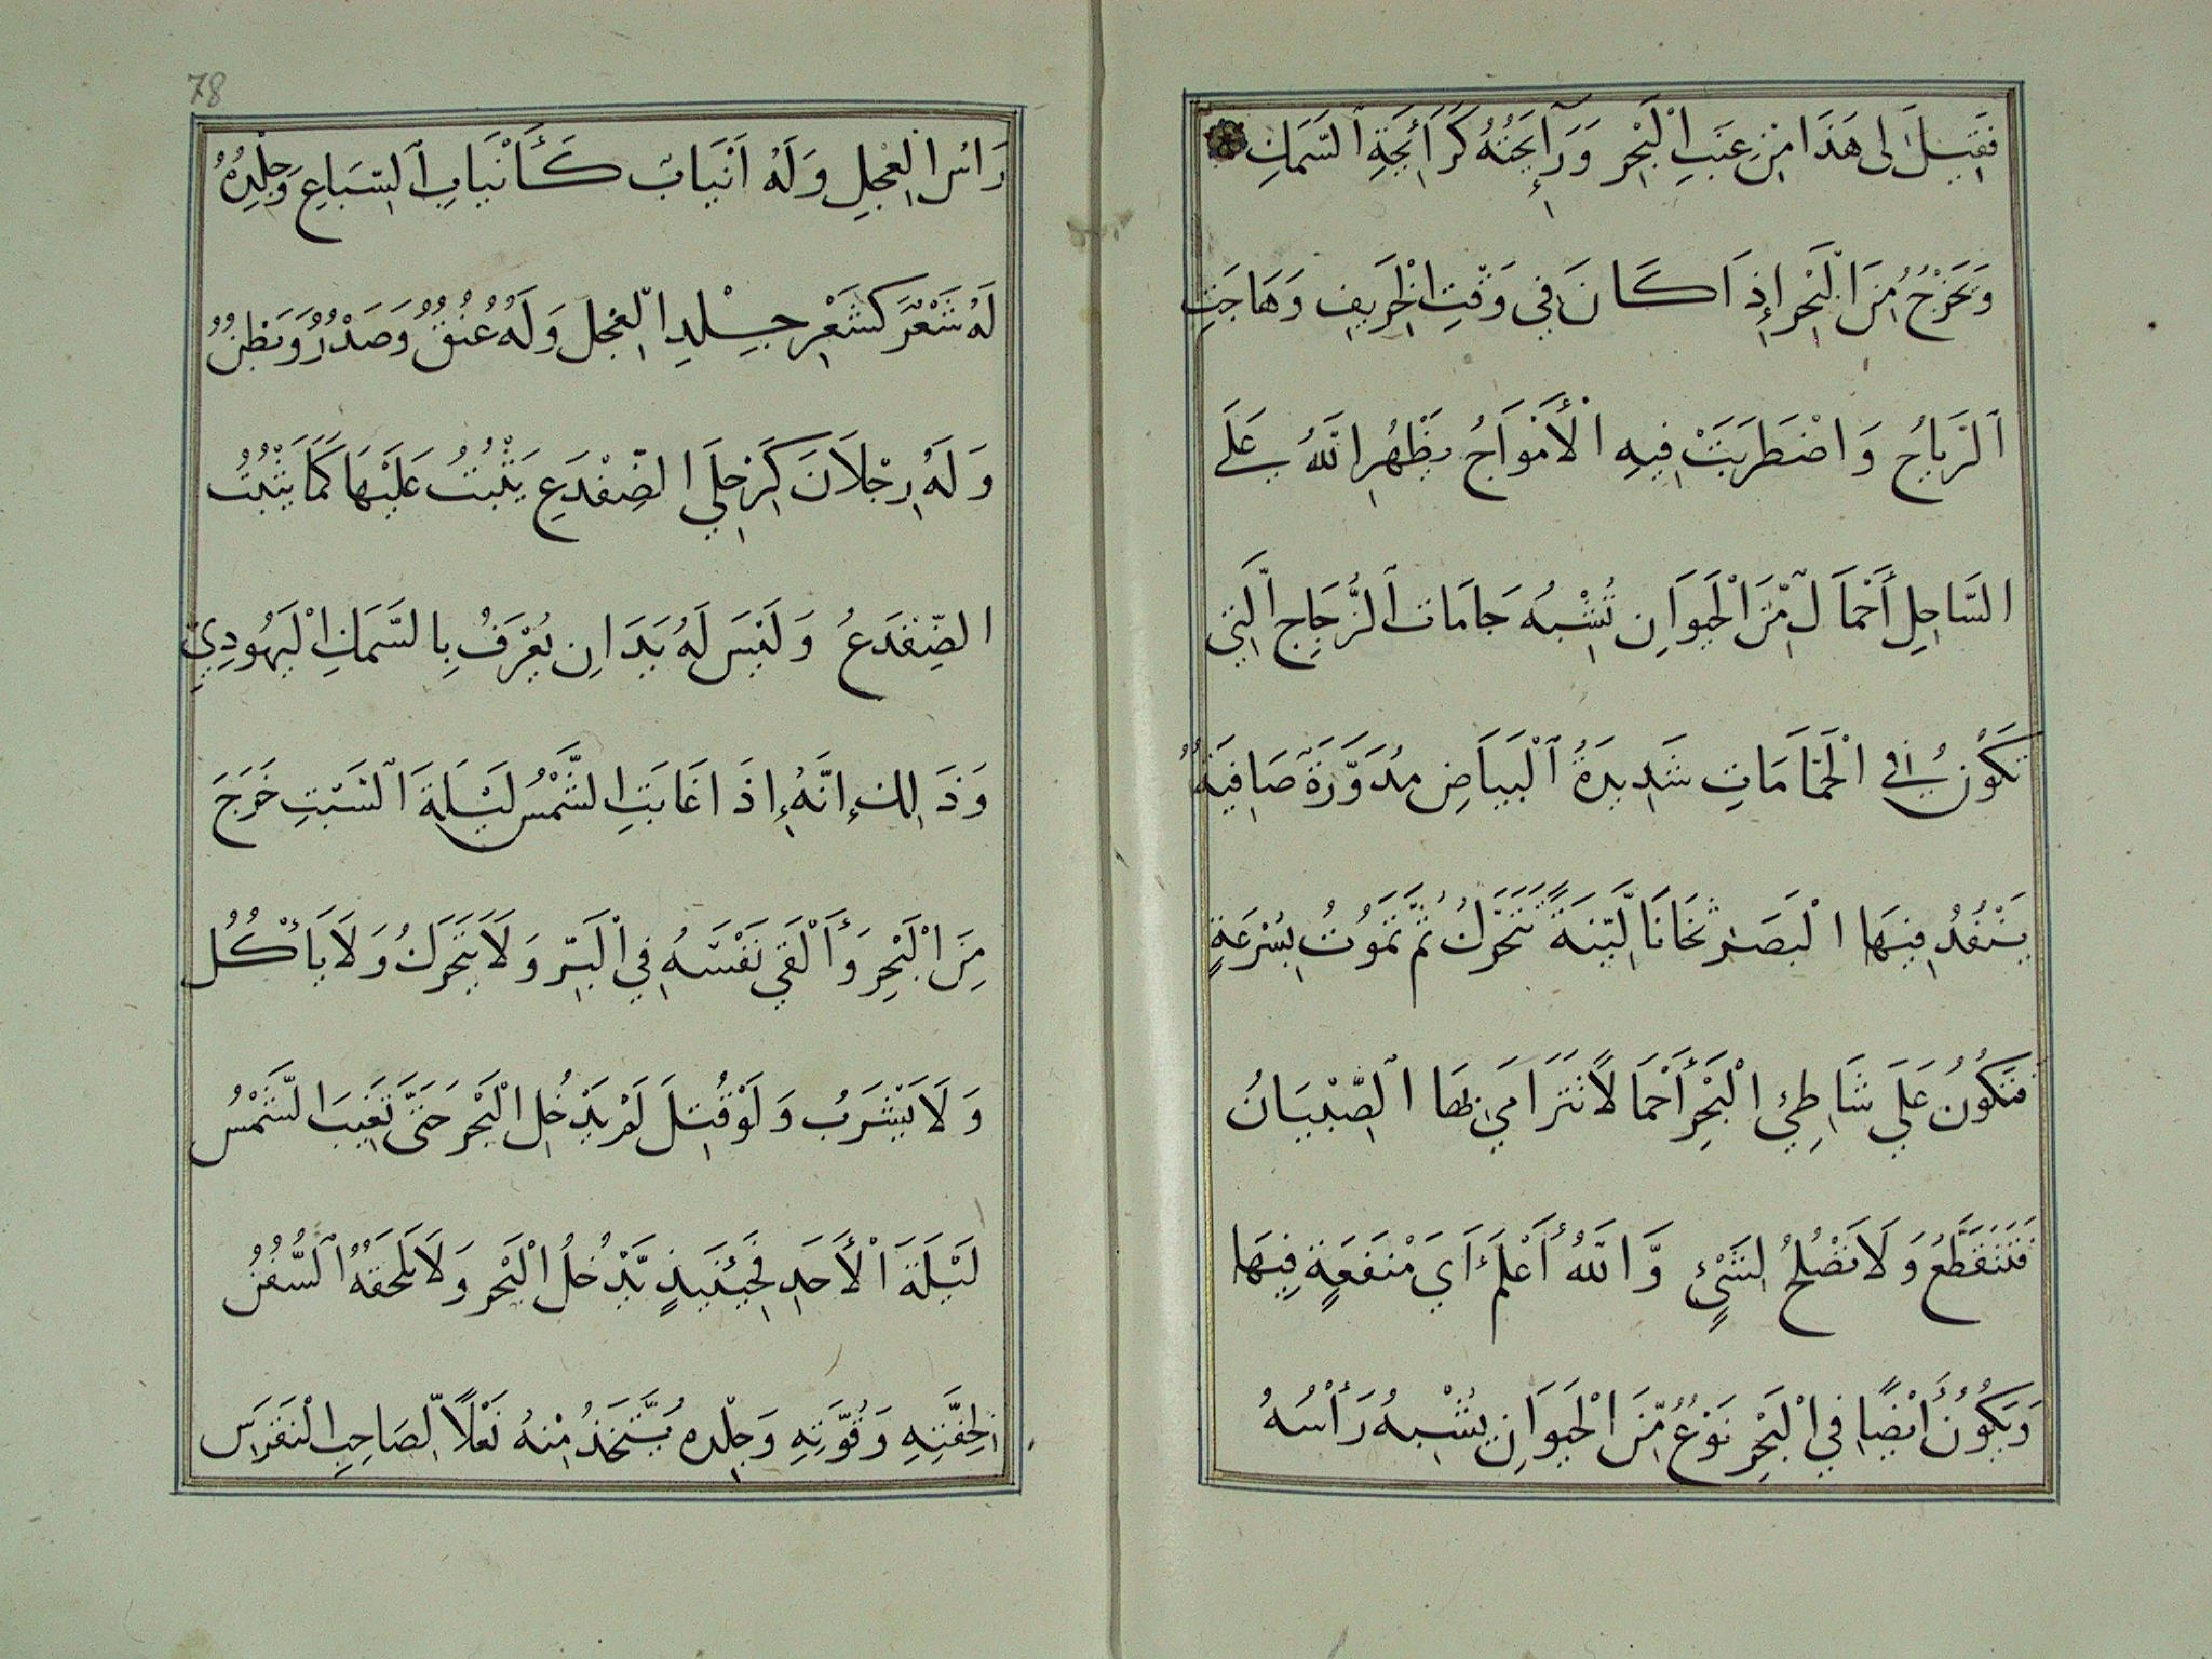 فَقِيلَ لى هَذَا مِنْ عِنَبِ الْبَحْرِ وَرَآئِحَتُهُ كَرَائِحَةِ السَّمَكِ
وَتَخْرُجُ مِنَ الْبَحْرِ إِذَا كَانَ فِي وَقْتِ الْخَرِيفِ وَهَاجَتِ
اَلرِّيَاحُ وَاضْطَرَبَتْ فِيهِ الْأَمْوَاجُ يَظْهُرِ اللَّهُ عَلَى
السَّاحِلِ أَحْمَالٌ مِّنَ الْحَيَوَانِ تُشْبِهُ جَامَاتِ الزُّجَاجِ الَّتِي
تَكُونُ فِي الْحَمَّامَاتِ شَدِيدَةُ الْبَيَاضِ مُدَوَّرَةٌ صَافِيَةٌ
يَنْفُدُ فِيهَا الْبَصَرُ ثَخَانَا لَيِّنَةً تَتَحَرَّكُ ثُمَّ تَمُوتُ بِسُرْعَةٍ
فَتَكُونُ عَلَي شَاطِئِ الْبَحْرِ أَحْمَالًا تَتَرَامَي بِهَا الصِّبْيَانُ
فَتَنْقَطِعُ وَلَا تَصْلُحُ لِشَيْءٍ وَّاللَّهُ أَعْلَمُ أَيَ مَنْفَعَةٍ فِيهَا
وَيَكُونُ أَيْضًا فِي الْبَحْرِ نَوْعٌ مِّنَ الْحَيَوَانِ يُشْبِهُ رَأْسُهُ
78
رَاسَ الْعِجْلِ وَلَهُ اَنْيَابٌ كَأَنْيَابِ السِّبَاعِ وَجِلْدُهُ
لَهُ شَعْرٌ كَشَعْرِ جِلْدِ الْعِجْلِ وَلَهُ عُنُقٌ وَصَدْرٌ وَبَطْنٌ
وَلَهُ رِجْلَانَ كَرِجْلَيِ الضِّفْدَعِ يَثْبُتُ عَلَيْهَا كَمَا يَثْبُتُ
الضِّفْدَعُ وَلَيْسَ لَهُ يَدَانِ يُعْرَفُ بِالسَّمَكِ الْيَهُودِيِّ
وَذَالِكَ إِنَّهُ إِذَا غَابَتِ الشَّمْسُ لَيْلَةَ السَّبْتِ خَرَجَ
مِنَ الْبَحْرِ وَأَلْقَي نَفْسَهُ فِي الْبَرِّ وَلَا يَتَحَرَّكُ وَلَا يَأْكُلُ
وَلَا يَشْرَبُ وَلَوْ قُتِلَ لَمْ يَدْخُلِ الْبَحْرَ حَتَّى تَغِيبَ الشَّمْسُ
لَيْلَةَ الْأَحَدِ فَحِينَئِذٍ يَّدْخُلُ الْبَحْرَ وَلَا تَلْحَقُهُ السُّفُنُ
لِخِفَّتِهِ وَقُوَّتِهِ وَجِلْدِهِ يُتَّخَذُ مِنْهُ نَعْلًا لِّصَاحِبِ النَّقْرَسِ